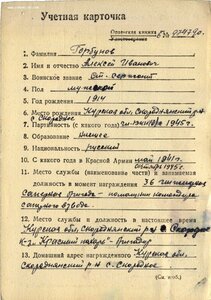 Учетная карточка
Орденская книжка
1. Фамилия Горбунов
2. Имя и отчество Алексей Иванович
3. Воинское звание ст. сержант
4. Пол мужской
5. Год рождения 1914
6. Место рождения Курская обл. Скороднянский р-н
с. Скородное
7. Партийность 1945 г.
8. Образование низшее
9. Национальность русский
10. С какого года в Красной Армии май 1941 г.
октябрь 1945 г.
11. Место службы (наименование части) и занимаемая
должность в момент награждения 36
помощник командира
взвода
12. Место службы и должность в настоящее время
Курская обл. Скороднянский р-н с. Скородное
К-з "Красный пахарь"
13. Домашний адрес награжденного Курская обл.
Скороднянский р-н с. Скородное
(См. н/об.)